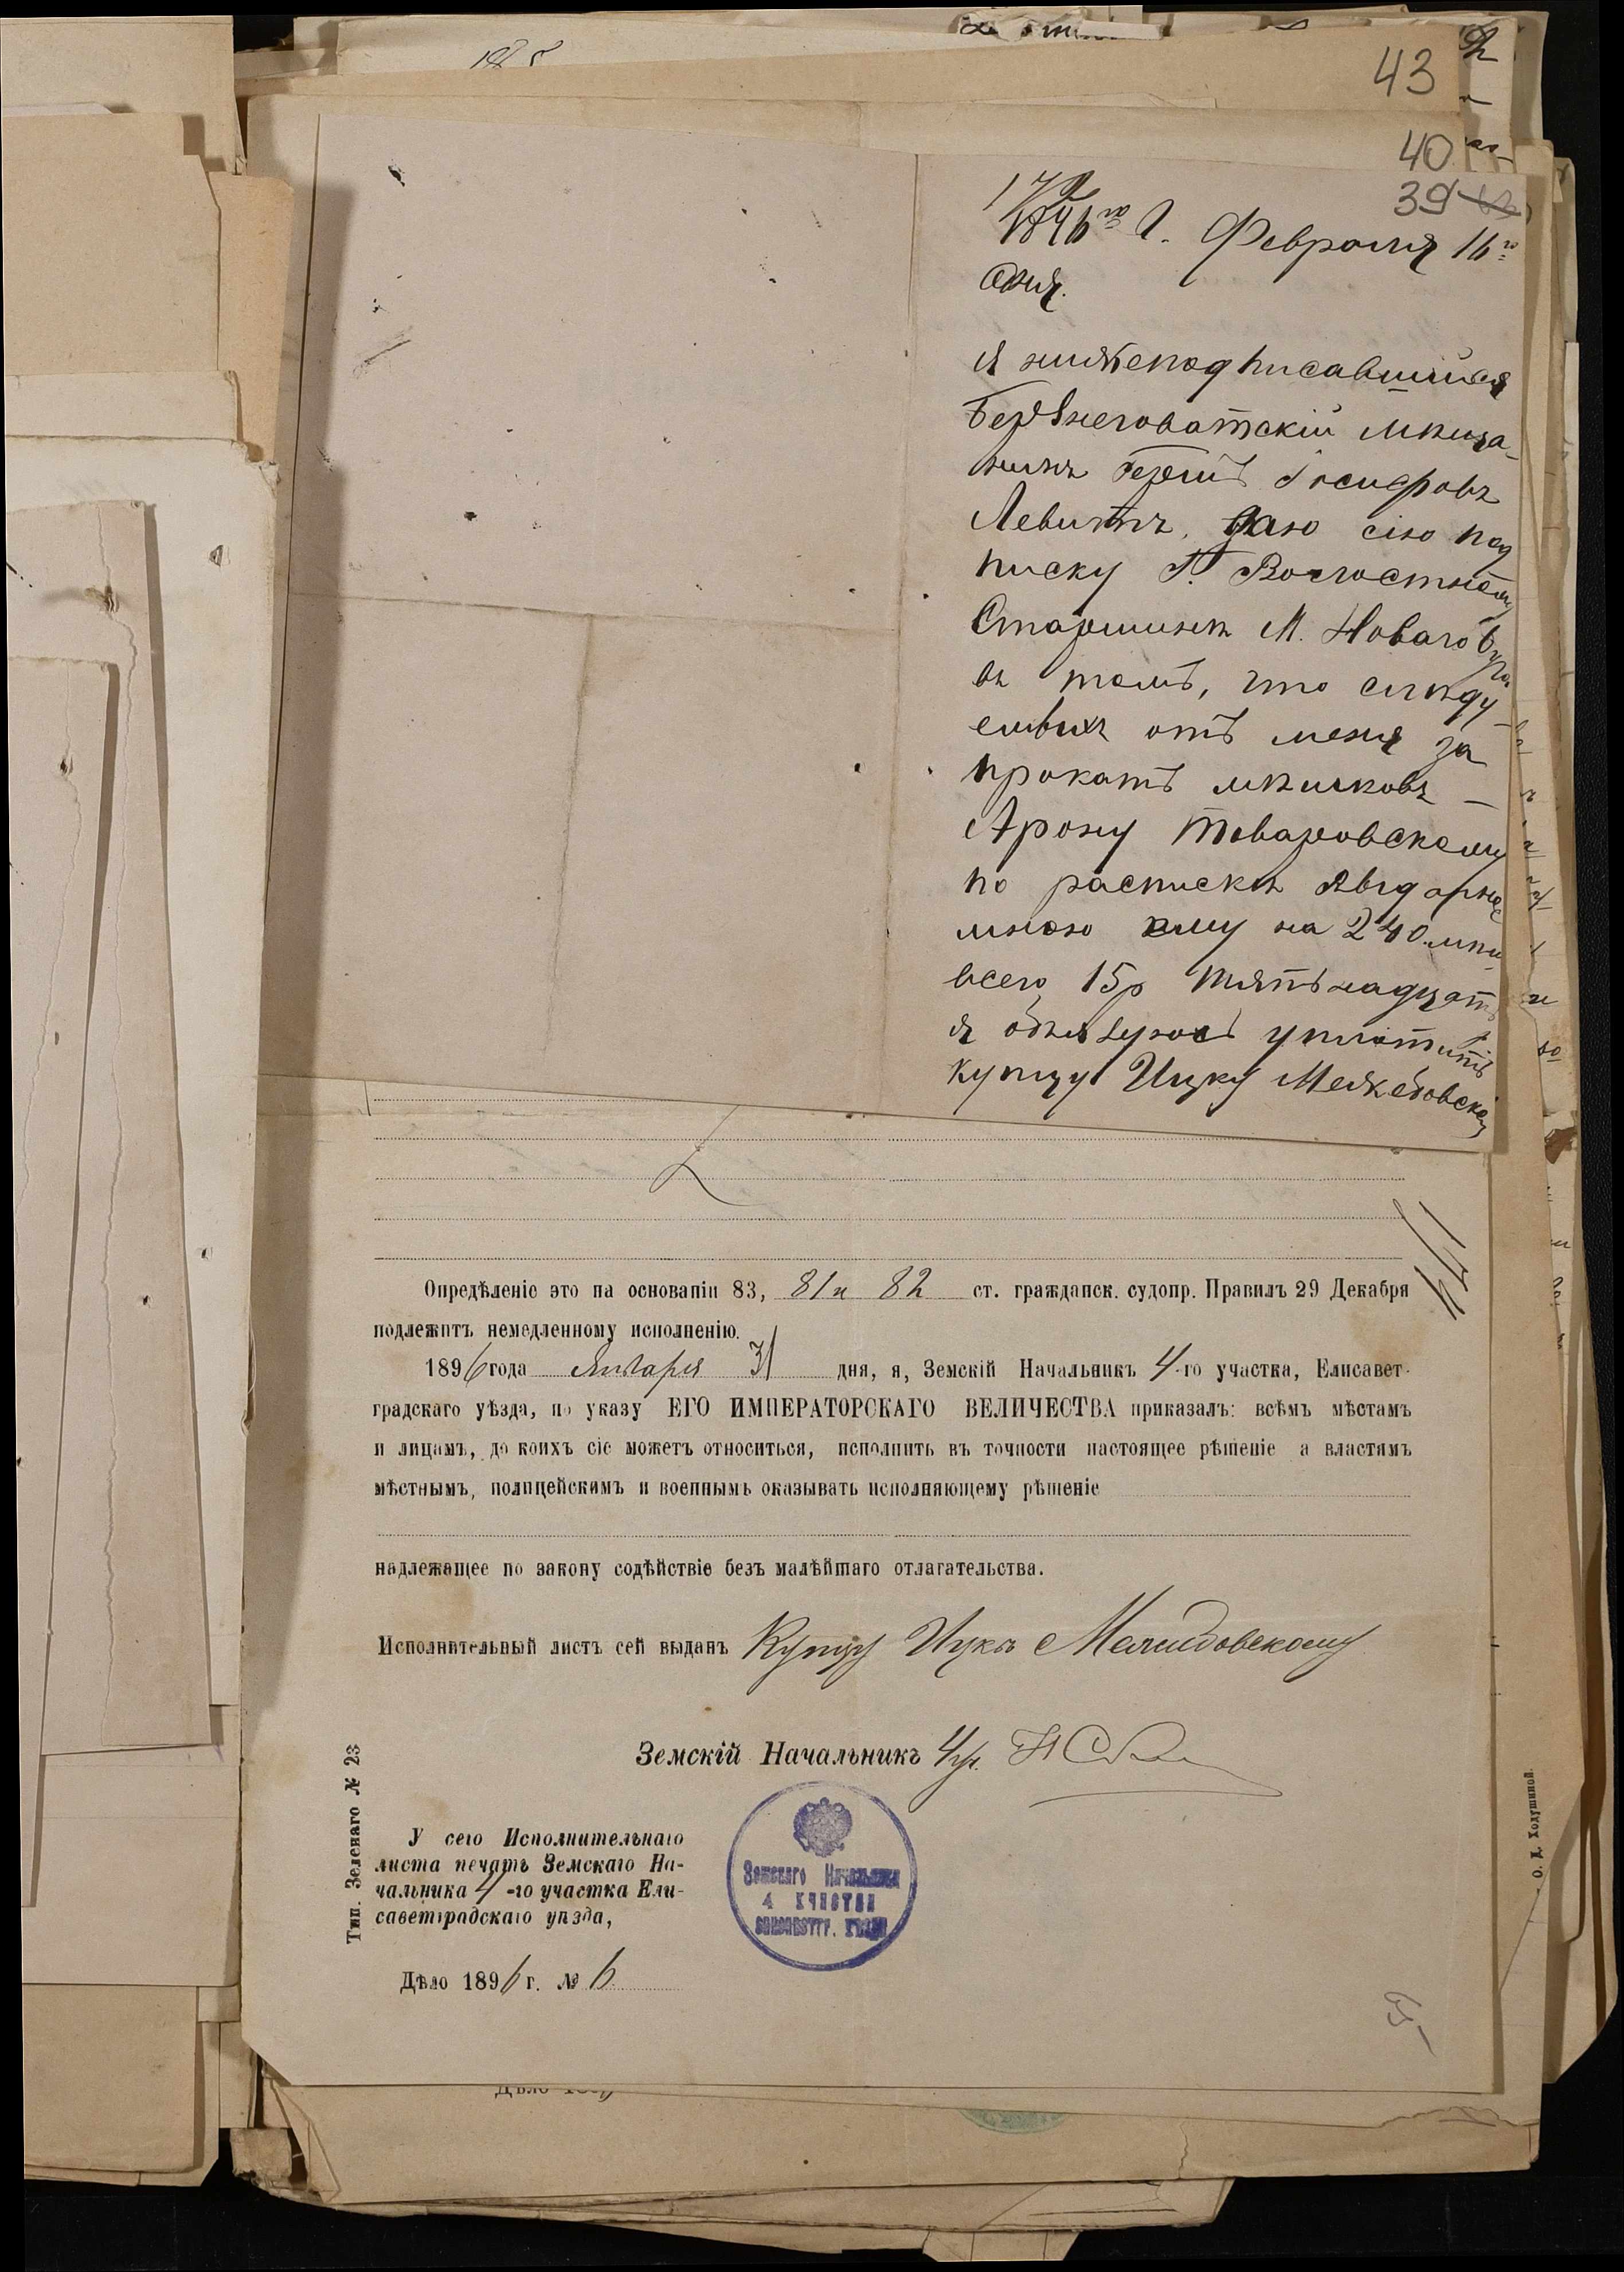 43
40
39
1896го Г. Февраля 16го
дня.
Я нижеподписавшийся
Берѣнеговатскій мѣща-
нинъ Іосифовъ
Левитъ, даю сію под
писку Г. Волостному
Старшинѣ М. Новаго Буга
въ томъ, что слѣду-
емыхъ отъ меня за
прокатъ мѣшковъ –
Арону Товаровскому
по распискѣ выданной
мною ему на 240 мѣш.
всего 15р пятьнадцать
я обязуюсь уплотить
купцу Ицку Межебовском
Опредѣленіе это на основаніи 83, 81 и 82 ст. гражданск. судопр. Правилъ 29 Декабря
подлежитъ немедленному исполненію.
1896 года Января 31 дня, я, Земскій Начальникъ 4-го участка, Елисавет-
градскаго уѣзда, по указу ЕГО ИМПЕРАТОРСКАГО ВЕЛИЧЕСТВА приказалъ: всѣмъ мѣстамъ
и лицамъ, до коихъ сіе можетъ относиться, исполнить въ точности настоящее рѣшеніе а властямъ
мѣстнымъ, полицейскимъ и военнымъ оказывать исполняющему рѣшеніе
надлежащее по закону содѣйствіе безъ малѣйшаго отлагательства.
Исполнительный листъ сей выданъ Купцу Ицкѣ Межибовскому
Земскій Начальникъ 4 уч.
У сего Исполнительнаго
листа печать Земскаго На-
чальника 4-го участка Ели-
саветградскаго уѣзда,
Земскаго Начальника
4 участка
Елисаветгр. уѣзда
Дѣло 1896 г. № 6
Тип. Зеленаго № 23
О. Д. Ходушиной.